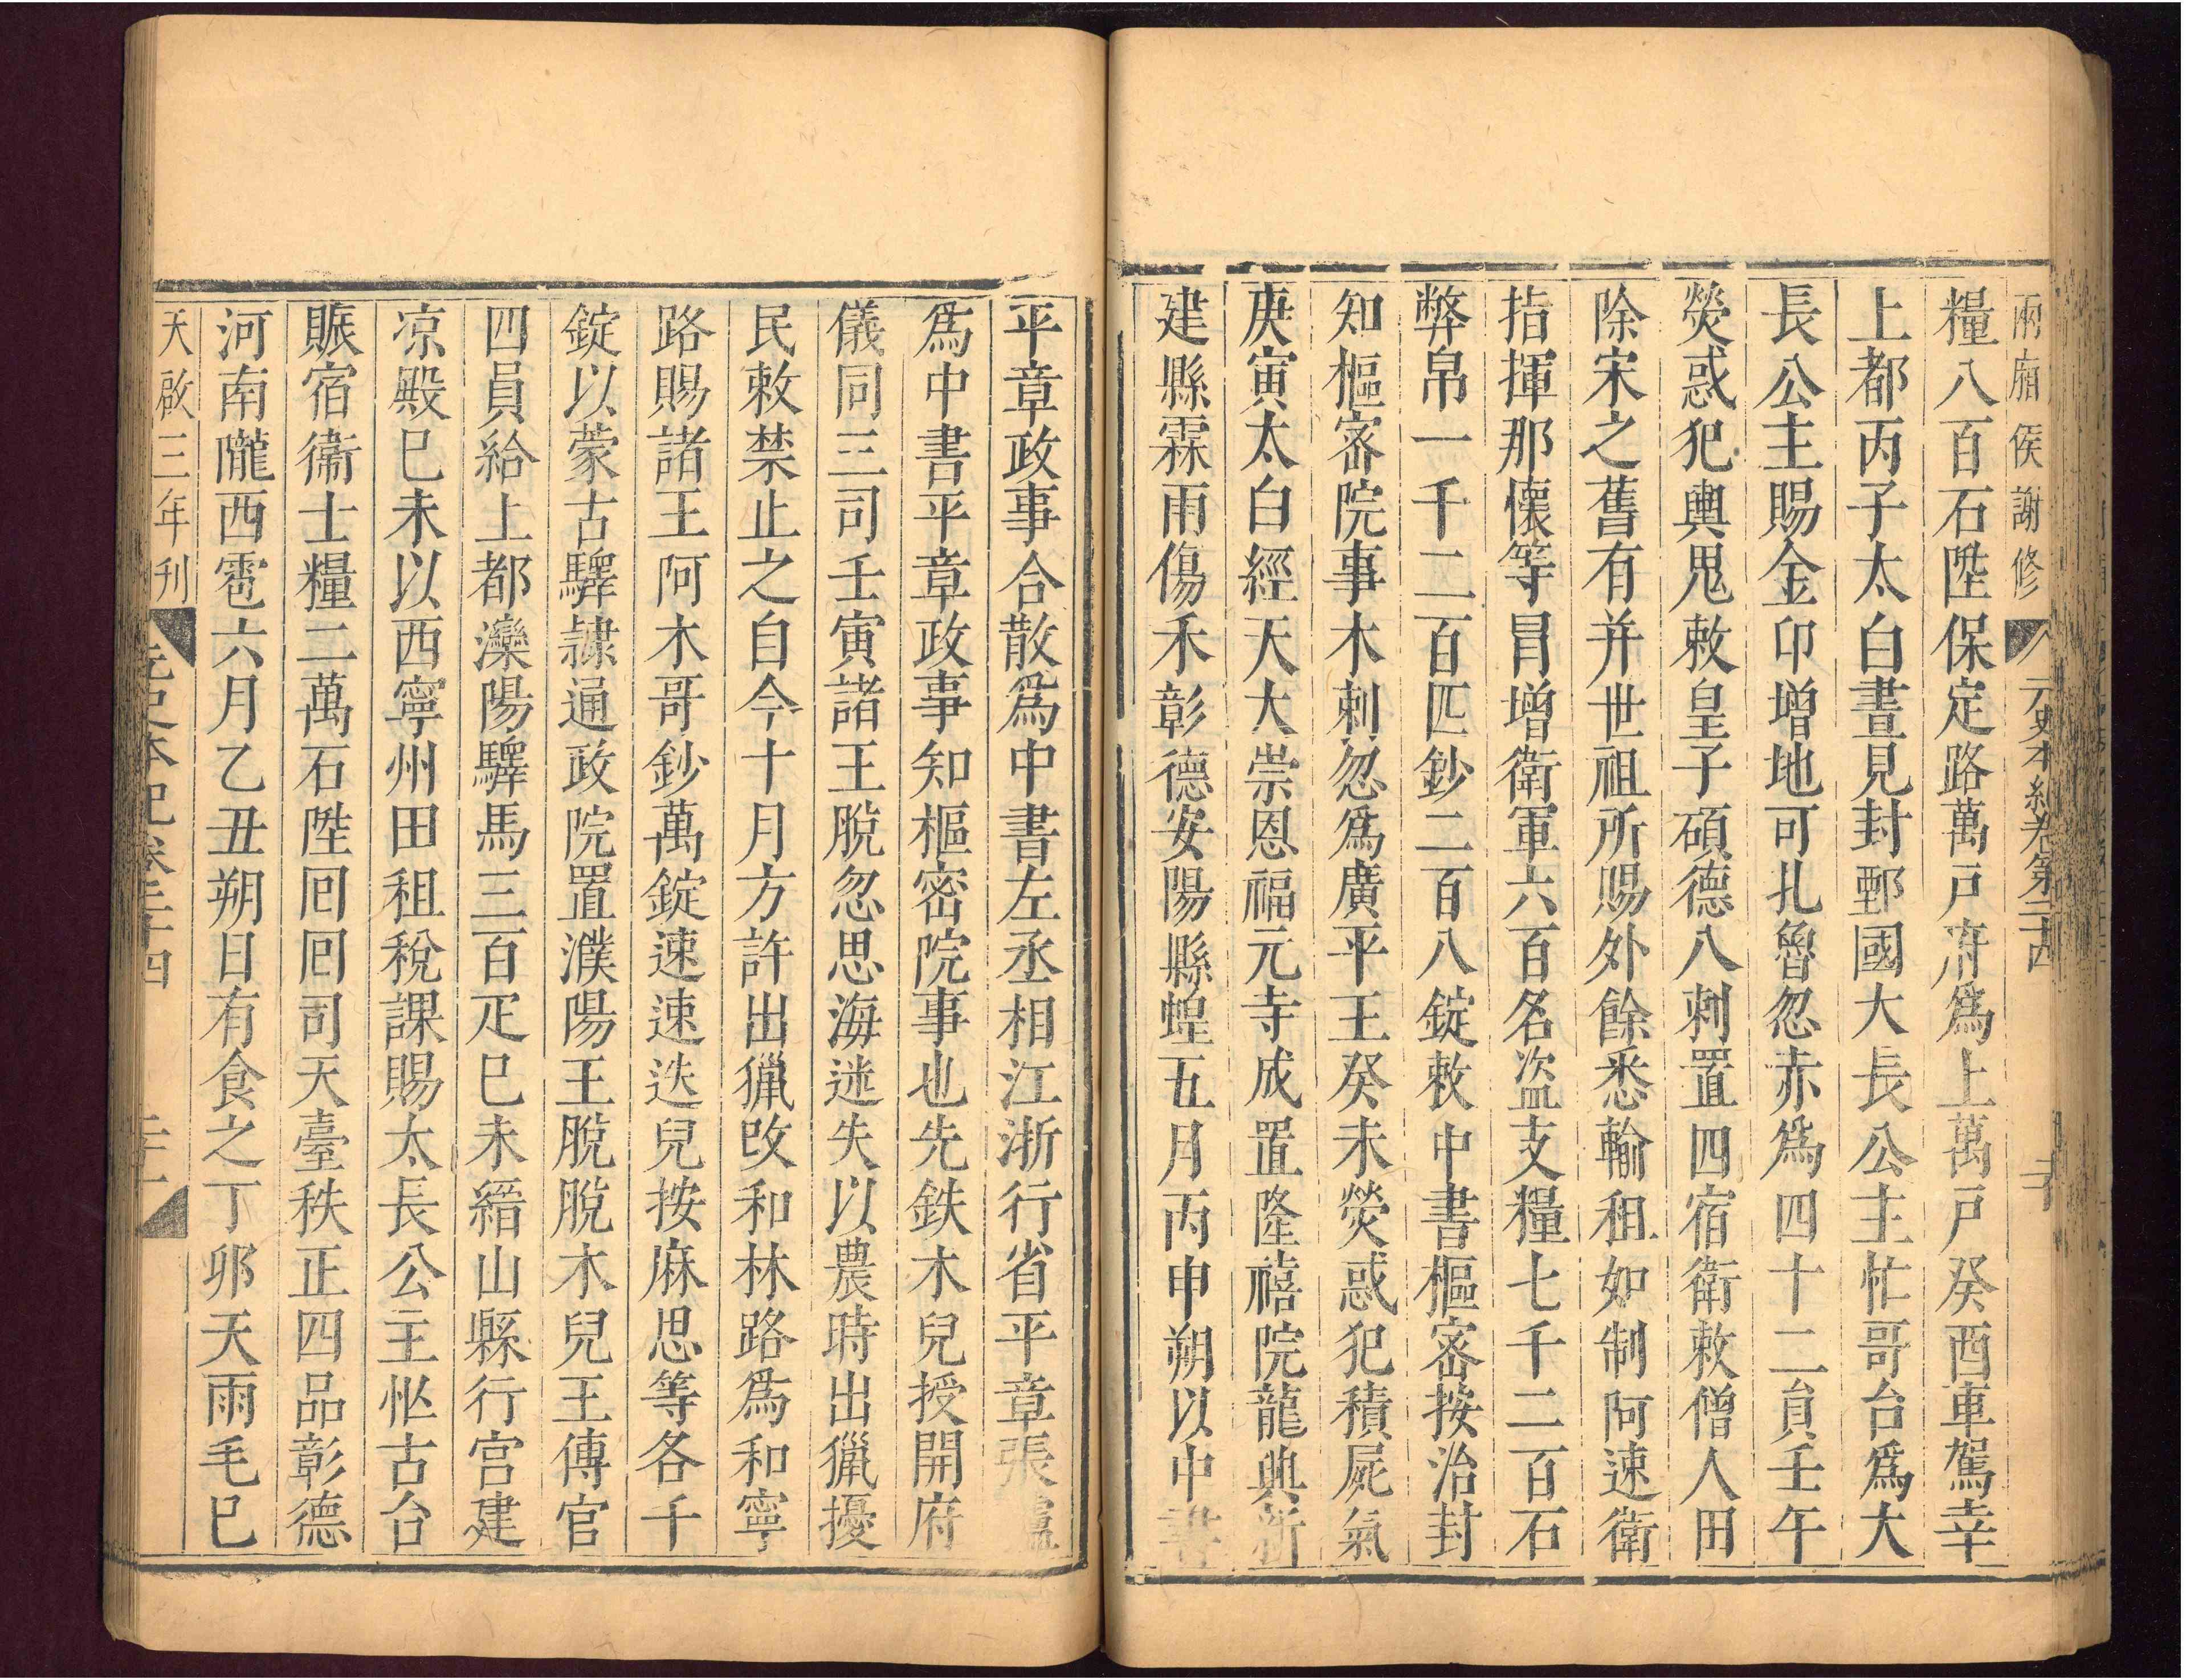 兩廂侯謝修 元史本紀卷第二十四 二十
糧八百石陞保定路萬戸府爲上萬戸癸酉車駕幸
上都丙子太白晝見封鄆國大長公主忙哥台爲大
長公主賜金印增地可扎魯忽赤爲四十二員壬午
熒惑犯輿鬼敕皇子碩德八剌置四宿衛敕僧人田
除宋之舊有并世祖所賜外餘悉輸租如制阿速衛
指揮那懷等冒增衛軍六百名盜支糧七千二百石
弊帛一千二百匹鈔二百八錠敕中書樞密按治封
知樞密院事木剌忽爲廣平王癸未熒惑犯積屍氣
庚寅太白經天大崇恩福元寺成置隆禧院龍興新
建縣霖雨傷禾彰德安陽縣蝗五月丙申朔以中書
平章政事合散爲中書左丞相江浙行省平章張驢
爲中書平章政事知樞密院事也先鉄木兒授開府
儀同三司壬寅諸王脫忽思海迷失以農時出獵擾
民敕禁止之自今十月方許出獵改和林路爲和寧
路賜諸王阿木哥鈔萬錠速速迭兒按麻思等各千
錠以蒙古驛隷通政院置濮陽王脫脫木兒王傅官
四員給上都灤陽驛馬三百疋巳未縉山縣行宮建
凉殿巳未以西寧州田租稅課賜太長公主忙古台
賑宿衞士糧二萬石陞囘囘司天臺秩正四品彰德
河南隴西雹六月乙丑朔日有食之丁卯天雨毛巳
天啟三年刊 元史本紀卷二十四 二十一